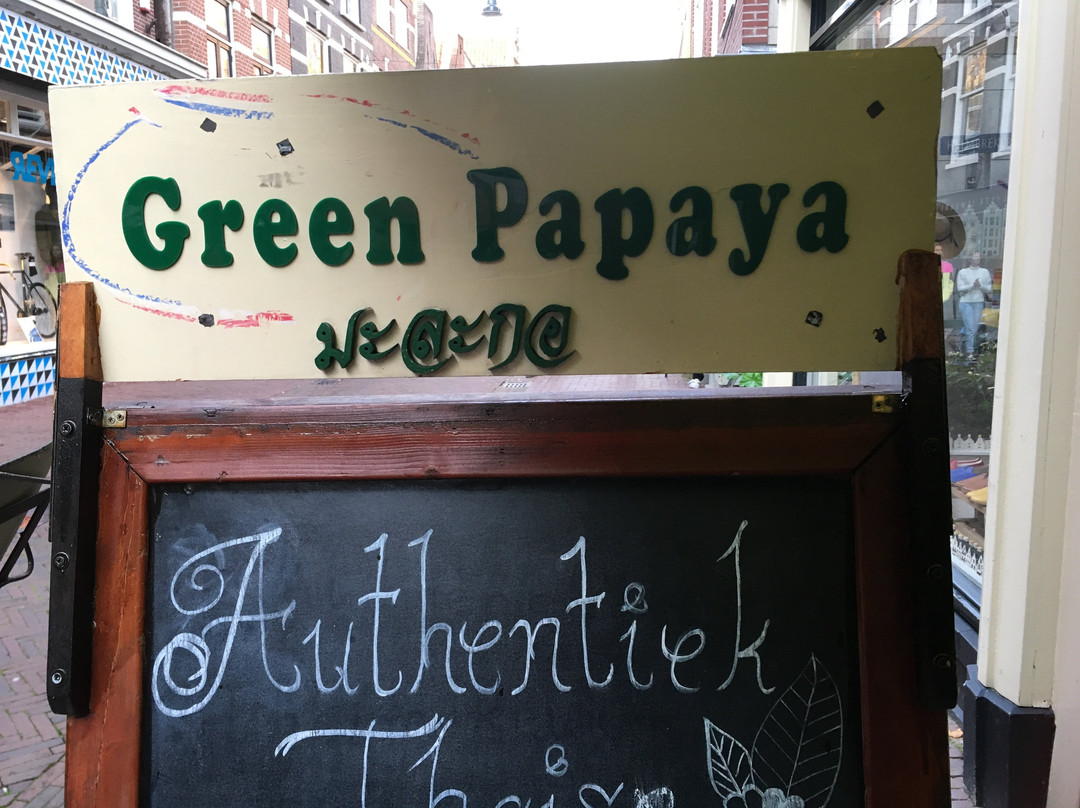 Green Papaya
มะละกอ
Authentiek
Thaise